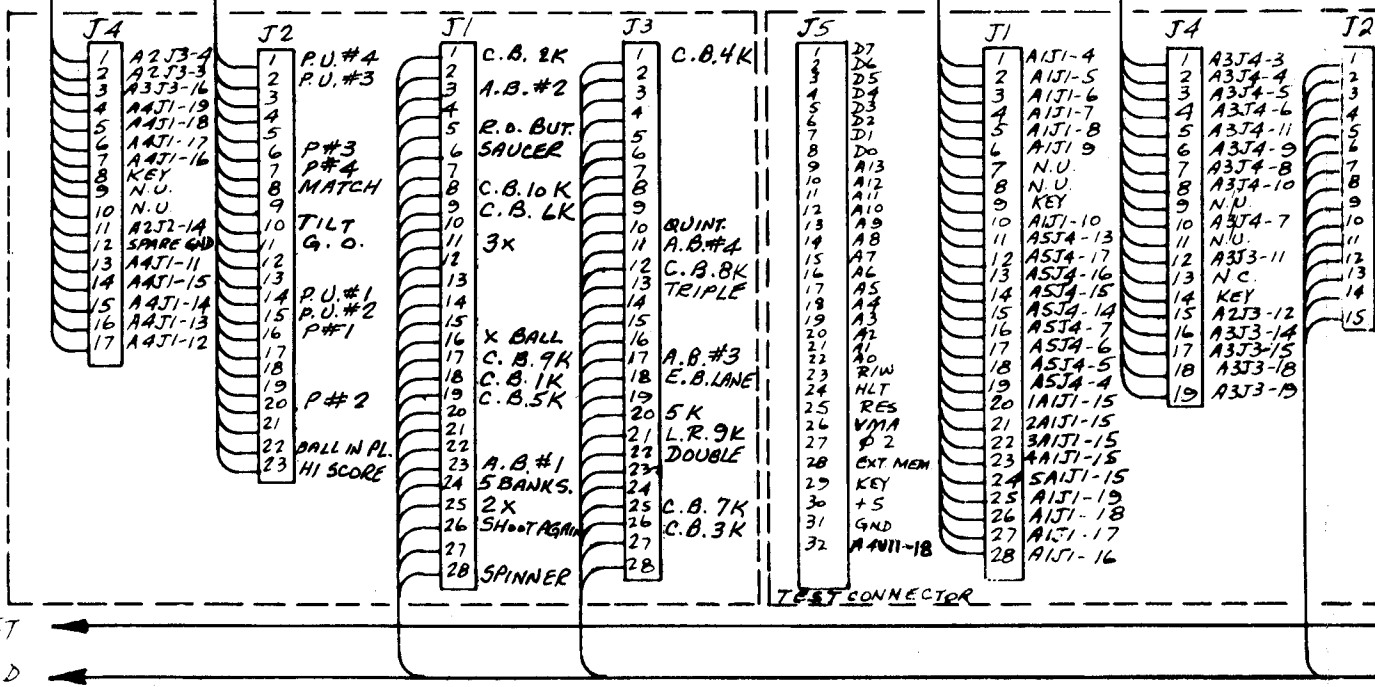 J4
1 A2J3-4
2 A2J3-3
3 A3J3-16
4 A4J1-19
5 A4J1-18
6 A4J1-17
7 A4J1-16
8 KEY
9 N.U.
10 N.U.
11 A2J2-14
12 SPARE GND
13 A4J1-11
14 A4J1-15
15 A4J1-14
16 A4J1-13
17 A4J1-12
J2
1 P.U.#4
2 P.U.#3
3
4
5
6 P#3
7 P#4
8 MATCH
9
10 TILT
11 G.O.
12
13
14 P.U.#1
15 P.U.#2
16 P#1
17
18
19
20 P#2
21
22 BALL IN PL.
23 HI SCORE
J1
1 C.B. 2K
2
3 A.B.#2
4
5 R.O. BUT.
6 SAUCER
7
8 C.B.10K
9 C.B. 6K
10
11 3X
12
13
14
15
16 X BALL
17 C.B. 9K
18 C.B. 1K
19 C.B.5K
20
21
22
23 A.B.#1
24 5 BANKS.
25 2X
26 SHOOT AGAIN
27
28 SPINNER
J3
1 C.B.4K
2
3
4
5
6
7
8
9
10 QUINT.
11 A.B.#4
12 C.B.8K
13 TRIPLE
14
15
16
17 A.B.#3
18 E.B.LANE
19
20 5K
21 L.R.9K
22 DOUBLE
23
24
25 C.B. 7K
26 C.B.3K
27
28
J5
1 D7
2 D6
3 D5
4 D4
5 D3
6 D2
7 D1
8 D0
9 A13
10 A12
11 A11
12 A10
13 A9
14 A8
15 A7
16 A6
17 A5
18 A4
19 A3
20 A2
21 A1
22 A0
23 R/W
24 HLT
25 RES
26 VMA
27 Ø2
28 EXT MEM
29 KEY
30 +5
31 GND
32 A4U11-18
TEST CONNECTOR
J1
1 A1J1-4
2 A1J1-5
3 A1J1-6
4 A1J1-7
5 A1J1-8
6 A1J1 9
7 N.U.
8 N.U.
9 KEY
10 A1J1-10
11 A5J4-13
12 A5J4-17
13 A5J4-16
14 A5J4-15
15 A5J4-14
16 A5J4-7
17 A5J4-6
18 A5J4-5
19 A5J4-4
20 1A1J1-15
21 2A1J1-15
22 3A1J1-15
23 4A1J1-15
24 5A1J1-15
25 A1J1-19
26 A1J1-18
27 A1J1-17
28 A1J1-16
J4
1 A3J4-3
2 A3J4-4
3 A3J4-5
4 A3J4-6
5 A3J4-11
6 A3J4-9
7 A3J4-8
8 A3J4-10
9 N.U.
10 A3J4-7
11 N.U.
12 A3J3-11
13 N.C.
14 KEY
15 A2J3-12
16 A3J3-14
17 A3J3-15
18 A3J3-18
19 A3J3-19
J2
1
2
3
4
5
6
7
8
9
10
11
12
13
14
15
T
D